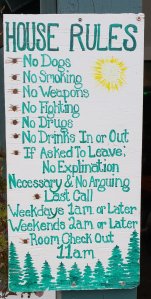 HOUSE RULES
No Dogs
No Smoking
No Weapons
No Fighting
No Drugs
No Drinks In or Out
If Asked To Leave,
No Explination
Necessary & No Arguing
Last Call
Weekdays 1am or Later
Weekends 2am or Later
Room Check Out
11am